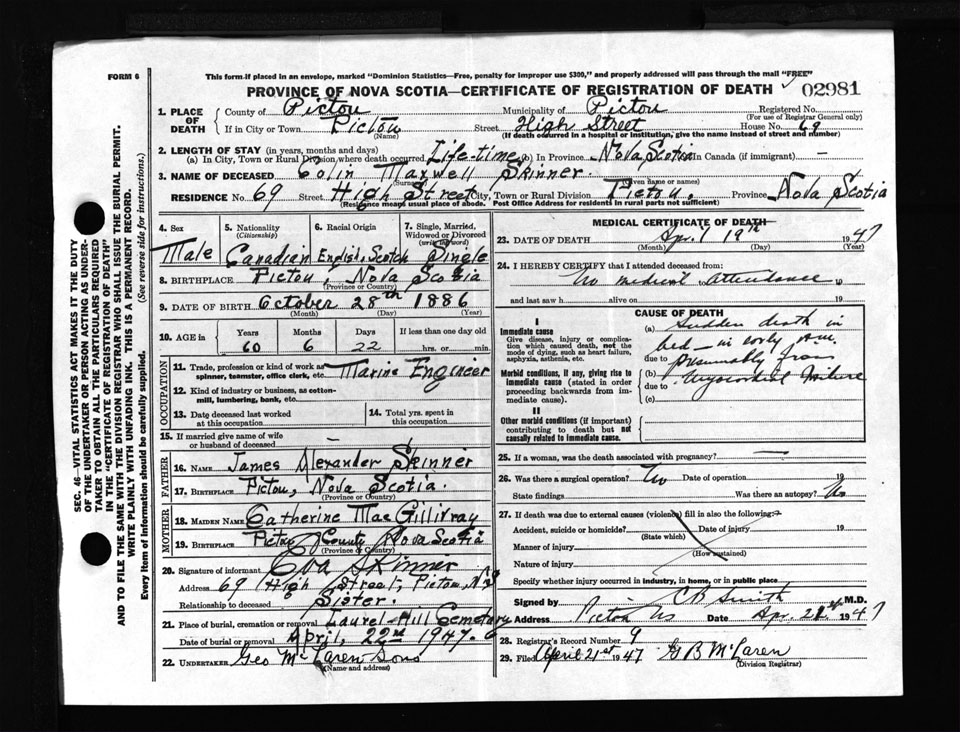 FORM 6
This form if placed in an envelope, marked "Dominion Statistics—Free, penalty for improper use $300," and properly addressed will pass through the mail "FREE"
PROVINCE OF NOVA SCOTIA—CERTIFICATE OF REGISTRATION OF DEATH
02981
1. PLACE OF DEATH
County of Pictou Municipality of Pictou Registered No.
(For use of Registrar General only)
If in City or Town Pictou Street High Street House No. 69
(Name) (If death occurred in a hospital or institution, give the name instead of street and number)
2. LENGTH OF STAY (in years, months and days)
(a) In City, Town or Rural Division where death occurred Life-time (b) In Province Nova Scotia in Canada (if immigrant) —
3. NAME OF DECEASED Colin Maxwell Skinner.
(Surname) (Given name or names)
RESIDENCE No. 69 Street High Street City, Town or Rural Division Pictou. Province Nova Scotia
(Residence means usual place of abode. Post Office Address for residents in rural parts not sufficient)
4. Sex
Male
5. Nationality
(Citizenship)
Canadian
6. Racial Origin
English, Scotch
7. Single, Married, Widowed or Divorced
(write the word)
Single
8. BIRTHPLACE Pictou, Nova Scotia
(Province or Country)
9. DATE OF BIRTH October 28th 1886
(Month) (Day) (Year)
10. AGE in
Years Months Days If less than one day old
60 6 22 hrs. or min.
OCCUPATION
11. Trade, profession or kind of work as spinner, teamster, office clerk, etc. Marine Engineer
12. Kind of industry or business, as cotton-mill, lumbering, bank, etc.
13. Date deceased last worked at this occupation
14. Total yrs. spent in this occupation
15. If married give name of wife or husband of deceased —
FATHER
16. NAME James Alexander Skinner
17. BIRTHPLACE Pictou, Nova Scotia.
(Province or Country)
MOTHER
18. MAIDEN NAME Catherine MacGillivray
19. BIRTHPLACE Pictou County Nova Scotia
(Province or Country)
20. Signature of informant Eva Skinner
Address 69 High Street, Pictou, N.S
Relationship to deceased Sister.
21. Place of burial, cremation or removal Laurel-Hill Cemetery
Date of burial or removal April, 22nd 1947.
22. UNDERTAKER Geo McLaren Sons
(Name and address)
MEDICAL CERTIFICATE OF DEATH
23. DATE OF DEATH Apr. 19th 1947
(Month) (Day) (Year)
24. I HEREBY CERTIFY that I attended deceased from:
No medical attendance 19
and last saw h alive on 19
CAUSE OF DEATH
I
Immediate cause
Give disease, injury or complication which caused death, not the mode of dying, such as heart failure, asphyxia, asthenia, etc.
Morbid conditions, if any, giving rise to immediate cause (stated in order proceeding backwards from immediate cause).
II
Other morbid conditions (if important) contributing to death but not causally related to immediate cause.
(a) Sudden death in
bed — in early p.m.
due to
(b) presumably from
due to Myocardial Failure
(c)
25. If a woman, was the death associated with pregnancy? —
26. Was there a surgical operation? No Date of operation 19
State findings Was there an autopsy? No
27. If death was due to external causes (violence) fill in also the following:—
Accident, suicide or homicide? Date of injury 19
(State which)
Manner of injury
(How sustained)
Nature of injury
Specify whether injury occurred in industry, in home, or in public place
Signed by CB Smith M.D.
Address Pictou NS Date Apr. 21st 1947
28. Registrar's Record Number 9
29. Filed April 21st 1947 G B McLaren
(Division Registrar)
SEC. 46—VITAL STATISTICS ACT MAKES IT THE DUTY
OF THE UNDERTAKER OR PERSON ACTING AS UNDER-
TAKER TO OBTAIN ALL THE PARTICULARS REQUIRED
IN THE "CERTIFICATE OF REGISTRATION OF DEATH"
AND TO FILE THE SAME WITH THE DIVISION REGISTRAR WHO SHALL ISSUE THE BURIAL PERMIT.
WRITE PLAINLY WITH UNFADING INK. THIS IS A PERMANENT RECORD.
Every item of information should be carefully supplied. (See reverse side for instructions.)